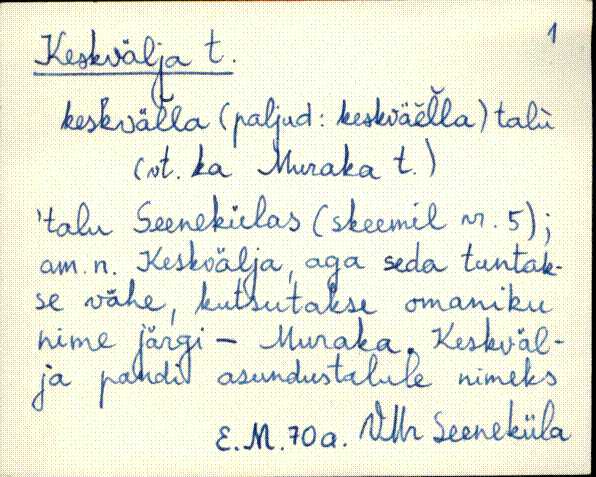 1
Keskvälja t.
keskvälla (paljud: keskväella) talù
(vt. ka Muraka t.)
'talu Seenekülas (skeemil nr. 5);
am. n. Keskvälja, aga seda tuntak-
se vähe, kutsutakse omaniku
nime järgi – Muraka. Keskväl-
ja pandi asundustalule nimeks
E. M. 70 a. VMr Seeneküla